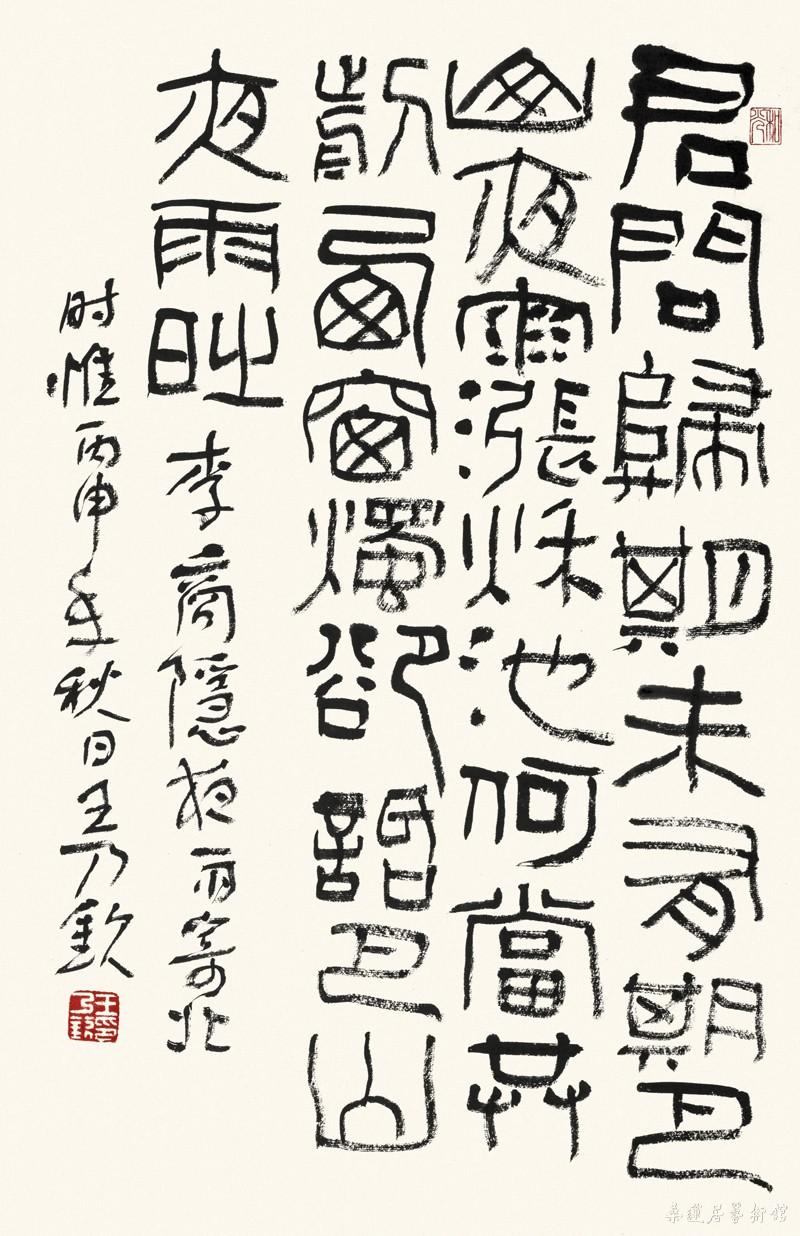 君問歸期未有期巴
山夜雨漲秋池何當共
剪西窗燭卻話巴山
夜雨時 李商隱夜雨寄北
时惟丙申年秋日王乃欽
桑蓮居藝術館